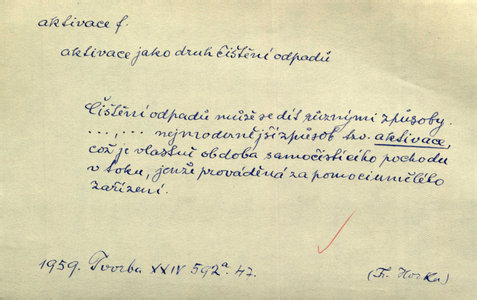 aktivace f.
aktivace jako druh čištění odpadů
Čištění odpadů může se dít různými způsoby.
...,... nejmodernější způsob tzv. aktivace,
což je vlastně obdoba samočisticího pochodu
v toku, jenže prováděná za pomoci umělého
zařízení.
1959. Tvorba XXIV 592a. 47. (Fr. Horka)